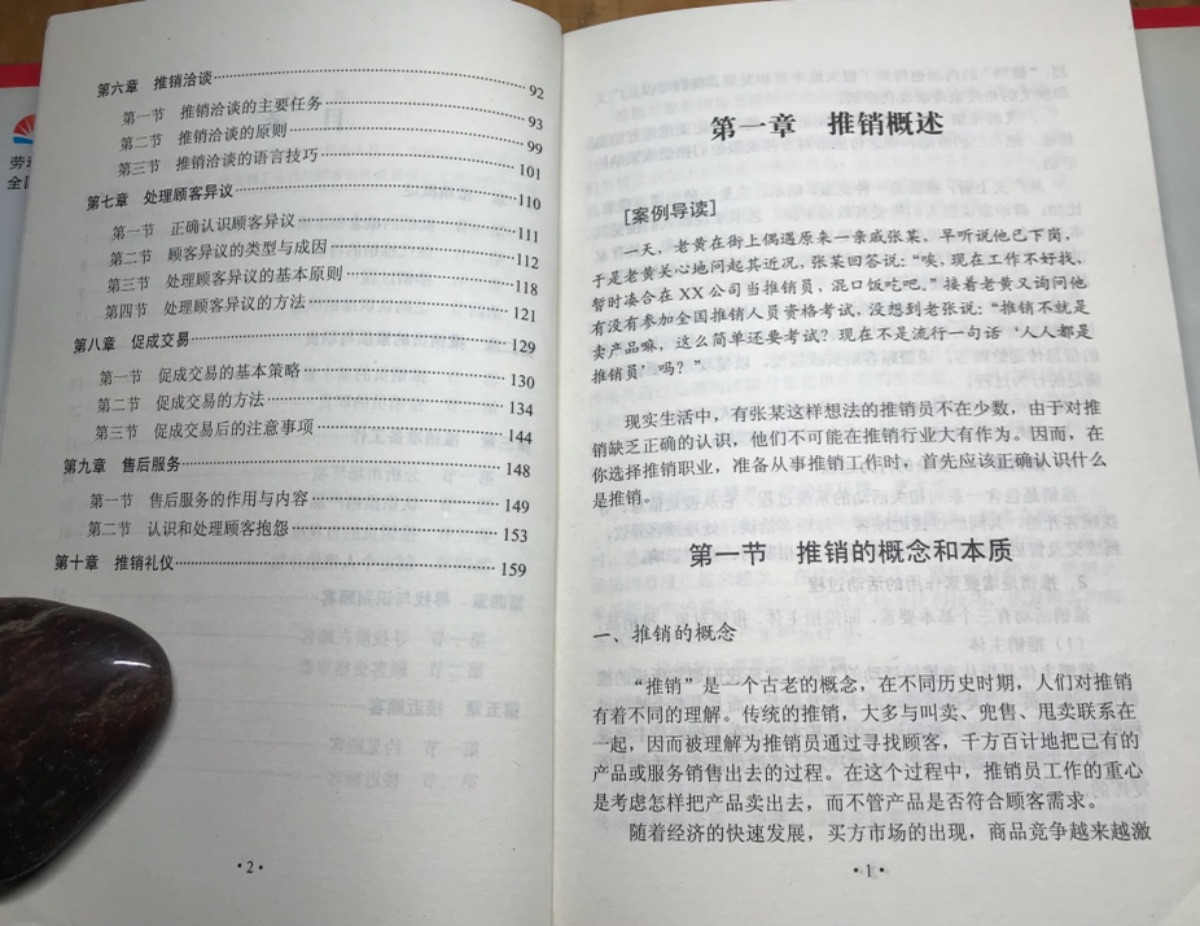 第六章 推销洽谈……92
第一节 推销洽谈的主要任务……93
第二节 推销洽谈的原则……99
第三节 推销洽谈的语言技巧……101
第七章 处理顾客异议……110
第一节 正确认识顾客异议……111
第二节 顾客异议的类型与成因……112
第三节 处理顾客异议的基本原则……118
第四节 处理顾客异议的方法……121
第八章 促成交易……129
第一节 促成交易的基本策略……130
第二节 促成交易的方法……134
第三节 促成交易后的注意事项……144
第九章 售后服务……148
第一节 售后服务的作用与内容……149
第二节 认识和处理顾客抱怨……153
第十章 推销礼仪……159
·2·
第一章 推销概述
[案例导读]
一天，老黄在街上偶遇原来一亲戚张某，早听说他已下岗，
于是老黄关心地问起其近况，张某回答说：“唉，现在工作不好找，
暂时凑合在XX公司当推销员，混口饭吃吧。”接着老黄又询问他
有没有参加全国推销人员资格考试，没想到老张说：“推销不就是
卖产品嘛，这么简单还要考试？现在不是流行一句话‘人人都是
推销员’吗？”
现实生活中，有张某这样想法的推销员不在少数，由于对推
销缺乏正确的认识，他们不可能在推销行业大有作为。因而，在
你选择推销职业，准备从事推销工作时，首先应该正确认识什么
是推销。
第一节 推销的概念和本质
一、推销的概念
“推销”是一个古老的概念，在不同历史时期，人们对推销
有着不同的理解。传统的推销，大多与叫卖、兜售、甩卖联系在
一起，因而被理解为推销员通过寻找顾客，千方百计地把已有的
产品或服务销售出去的过程。在这个过程中，推销员工作的重心
是考虑怎样把产品卖出去，而不管产品是否符合顾客需求。
随着经济的快速发展，买方市场的出现，商品竞争越来越激
·1·